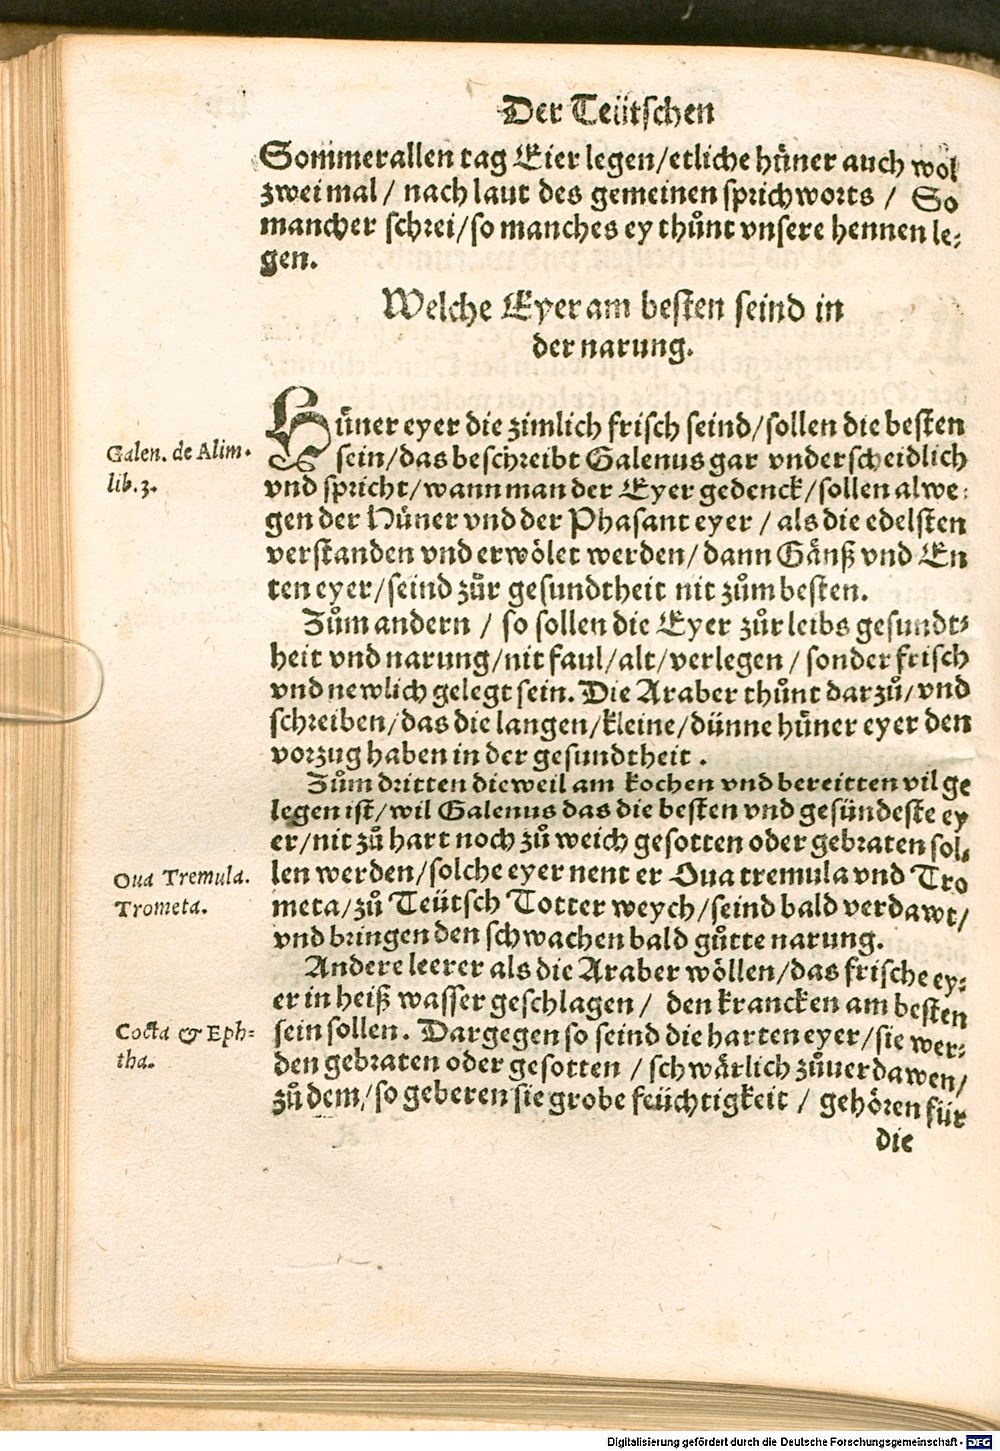 Der Teütschen
Sommer allen tag Eier legen/etliche hüner auch wol
zwei mal / nach laut des gemeinen sprichworts / So
mancher schrei/so manches ey thůnt vnsere hennen le⸗
gen.
Welche Eyer am besten seind in
der narung.
Hüner eyer die zimlich frisch seind/sollen die besten
Galen. de Alim.
sein/das beschreibt Galenus gar vnderscheidlich
lib.3.
vnd spricht/wann man der Eyer gedenck/sollen alwe⸗
gen der Hüner vnd der Phasant eyer / als die edelsten
verstanden vnd erwölet werden/dann Gänß vnd En
ten eyer/seind zůr gesundtheit nit zům besten.
Zům andern / so sollen die Eyer zůr leibs gesundt⸗
heit vnd narung/nit faul/alt/verlegen / sonder frisch
vnd newlich gelegt sein. Die Araber thůnt darzů/vnd
schreiben/das die langen/kleine/dünne hüner eyer den
vorzug haben in der gesundtheit .
Zům dritten dieweil am kochen vnd bereitten vil ge
legen ist/wil Galenus das die besten vnd gesündeste ey
er/nit zů hart noch zů weich gesotten oder gebraten sol⸗
Oua Tremula.
len werden/solche eyer nent er Oua tremula vnd Tro
Trometa.
meta/zů Teütsch Totter weych/seind bald verdawt/
vnd bringen den schwachen bald gůtte narung.
Andere leerer als die Araber wöllen/das frische ey⸗
er in heiß wasser geschlagen / den krancken am besten
Cocta & Eph⸗
sein sollen. Dargegen so seind die harten eyer/sie wer⸗
tha.
den gebraten oder gesotten / schwärlich zůuerdawen/
zů dem/so geberen sie grobe feüchtigkeit / gehören für
die
Digitalisierung gefördert durch die Deutsche Forschungsgemeinschaft - DFG